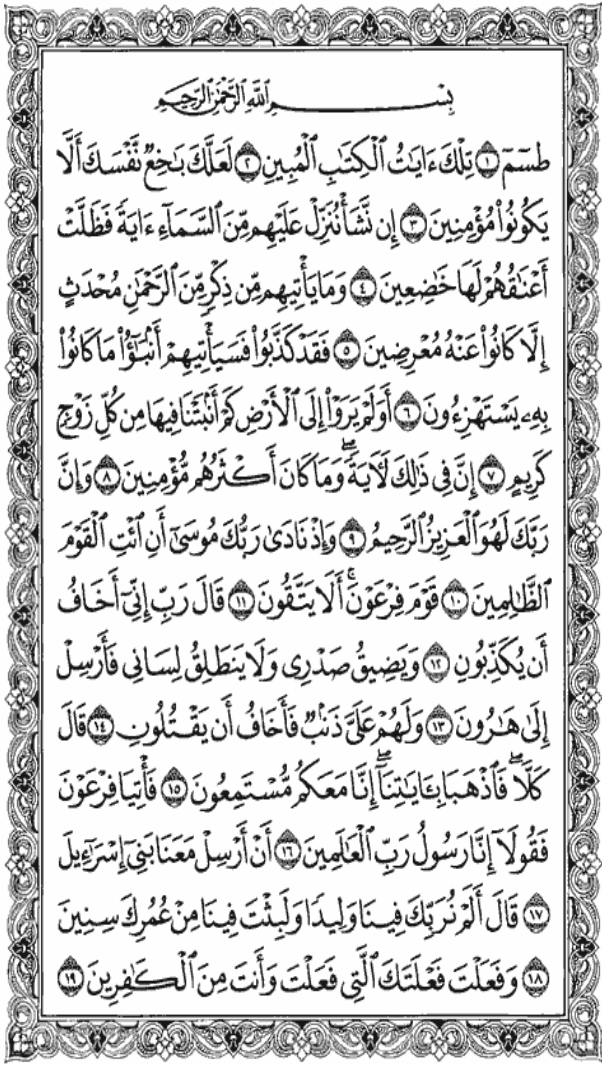 بِسْمِ ٱللَّهِ ٱلرَّحْمَٰنِ ٱلرَّحِيمِ
طسٓمٓ ١ تِلْكَ ءَايَٰتُ ٱلْكِتَٰبِ ٱلْمُبِينِ ٢ لَعَلَّكَ بَٰخِعٌ نَّفْسَكَ أَلَّا
يَكُونُوا۟ مُؤْمِنِينَ ٣ إِن نَّشَأْ نُنَزِّلْ عَلَيْهِم مِّنَ ٱلسَّمَآءِ ءَايَةً فَظَلَّتْ
أَعْنَٰقُهُمْ لَهَا خَٰضِعِينَ ٤ وَمَا يَأْتِيهِم مِّن ذِكْرٍ مِّنَ ٱلرَّحْمَٰنِ مُحْدَثٍ
إِلَّا كَانُوا۟ عَنْهُ مُعْرِضِينَ ٥ فَقَدْ كَذَّبُوا۟ فَسَيَأْتِيهِمْ أَنۢبَٰٓؤُا۟ مَا كَانُوا۟
بِهِۦ يَسْتَهْزِءُونَ ٦ أَوَلَمْ يَرَوْا۟ إِلَى ٱلْأَرْضِ كَمْ أَنۢبَتْنَا فِيهَا مِن كُلِّ زَوْجٍ
كَرِيمٍ ٧ إِنَّ فِى ذَٰلِكَ لَءَايَةً ۖ وَمَا كَانَ أَكْثَرُهُم مُّؤْمِنِينَ ٨ وَإِنَّ
رَبَّكَ لَهُوَ ٱلْعَزِيزُ ٱلرَّحِيمُ ٩ وَإِذْ نَادَىٰ رَبُّكَ مُوسَىٰٓ أَنِ ٱئْتِ ٱلْقَوْمَ
ٱلظَّٰلِمِينَ ١٠ قَوْمَ فِرْعَوْنَ ۚ أَلَا يَتَّقُونَ ١١ قَالَ رَبِّ إِنِّىٓ أَخَافُ
أَن يُكَذِّبُونِ ١٢ وَيَضِيقُ صَدْرِى وَلَا يَنطَلِقُ لِسَانِى فَأَرْسِلْ
إِلَىٰ هَٰرُونَ ١٣ وَلَهُمْ عَلَىَّ ذَنۢبٌ فَأَخَافُ أَن يَقْتُلُونِ ١٤ قَالَ
كَلَّا ۖ فَٱذْهَبَا بِـَٔايَٰتِنَآ ۖ إِنَّا مَعَكُم مُّسْتَمِعُونَ ١٥ فَأْتِيَا فِرْعَوْنَ
فَقُولَآ إِنَّا رَسُولُ رَبِّ ٱلْعَٰلَمِينَ ١٦ أَنْ أَرْسِلْ مَعَنَا بَنِىٓ إِسْرَٰٓءِيلَ
١٧ قَالَ أَلَمْ نُرَبِّكَ فِينَا وَلِيدًا وَلَبِثْتَ فِينَا مِنْ عُمُرِكَ سِنِينَ
١٨ وَفَعَلْتَ فَعْلَتَكَ ٱلَّتِى فَعَلْتَ وَأَنتَ مِنَ ٱلْكَٰفِرِينَ ١٩